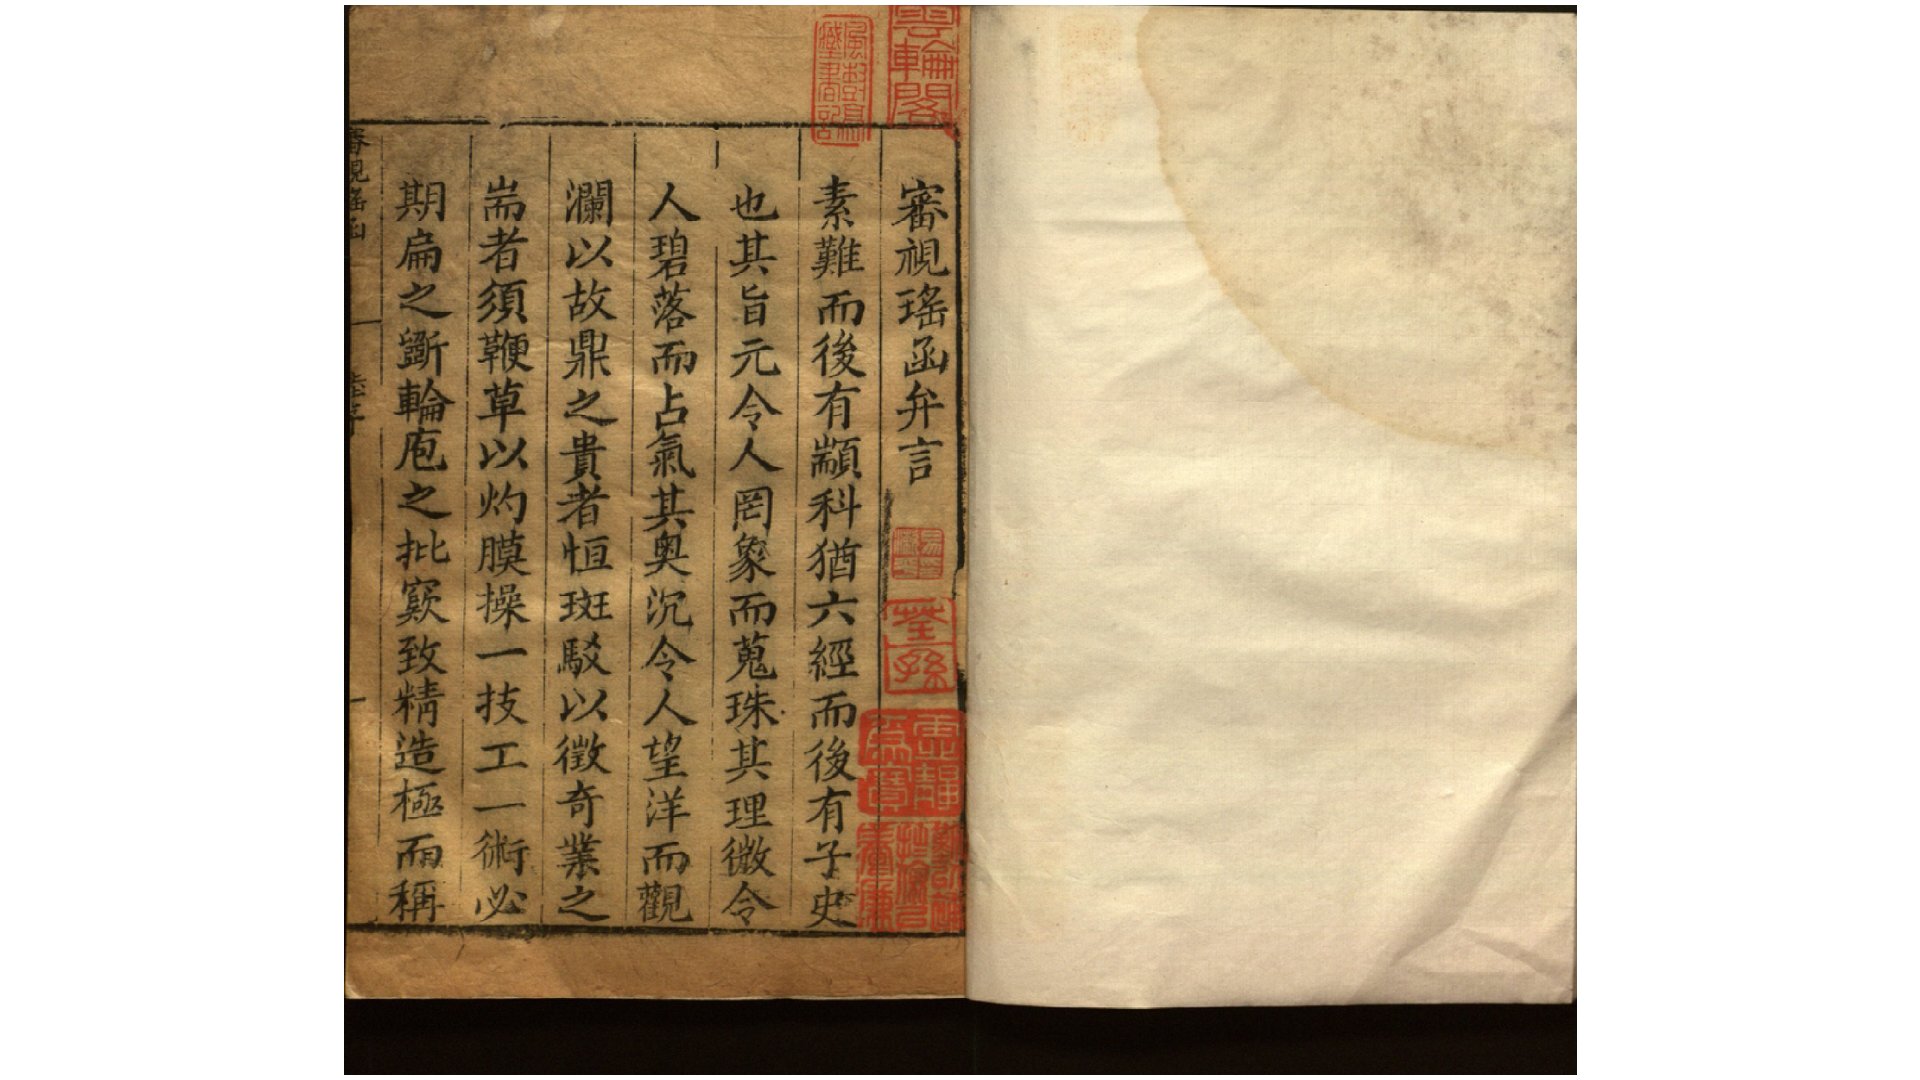 審視瑤函弁言
素難而後有顓科猶六經而後有子史
也其旨元令人罔象而蒐珠其理微令
人碧落而占氣其奧沉令人望洋而觀
瀾以故鼎之貴者恒斑駁以徵奇業之
耑者須鞭草以灼膜操一技工一術必
期扁之斲輪庖之批窾致精造極而稱
審視瑤函
雲輪閣
風樹亭藏書記
荃孫
虛靜為寶